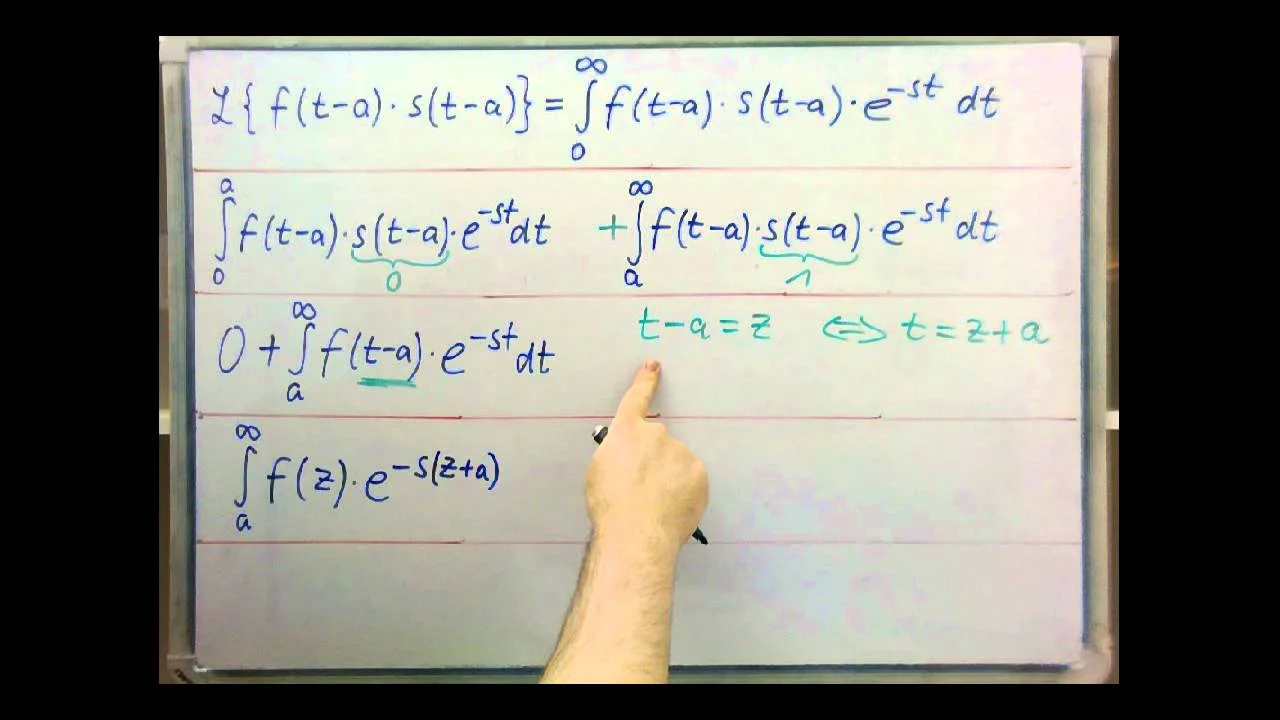 ℒ{ f(t-a) · s(t-a)} = ∫₀^∞ f(t-a) · s(t-a) · e^{-st} dt
∫₀^a f(t-a) · s(t-a) · e^{-st} dt + ∫ₐ^∞ f(t-a) · s(t-a) · e^{-st} dt
0 1
0 + ∫ₐ^∞ f(t-a) · e^{-st} dt t-a = z ⇔ t = z+a
∫ₐ^∞ f(z) · e^{-s(z+a)}